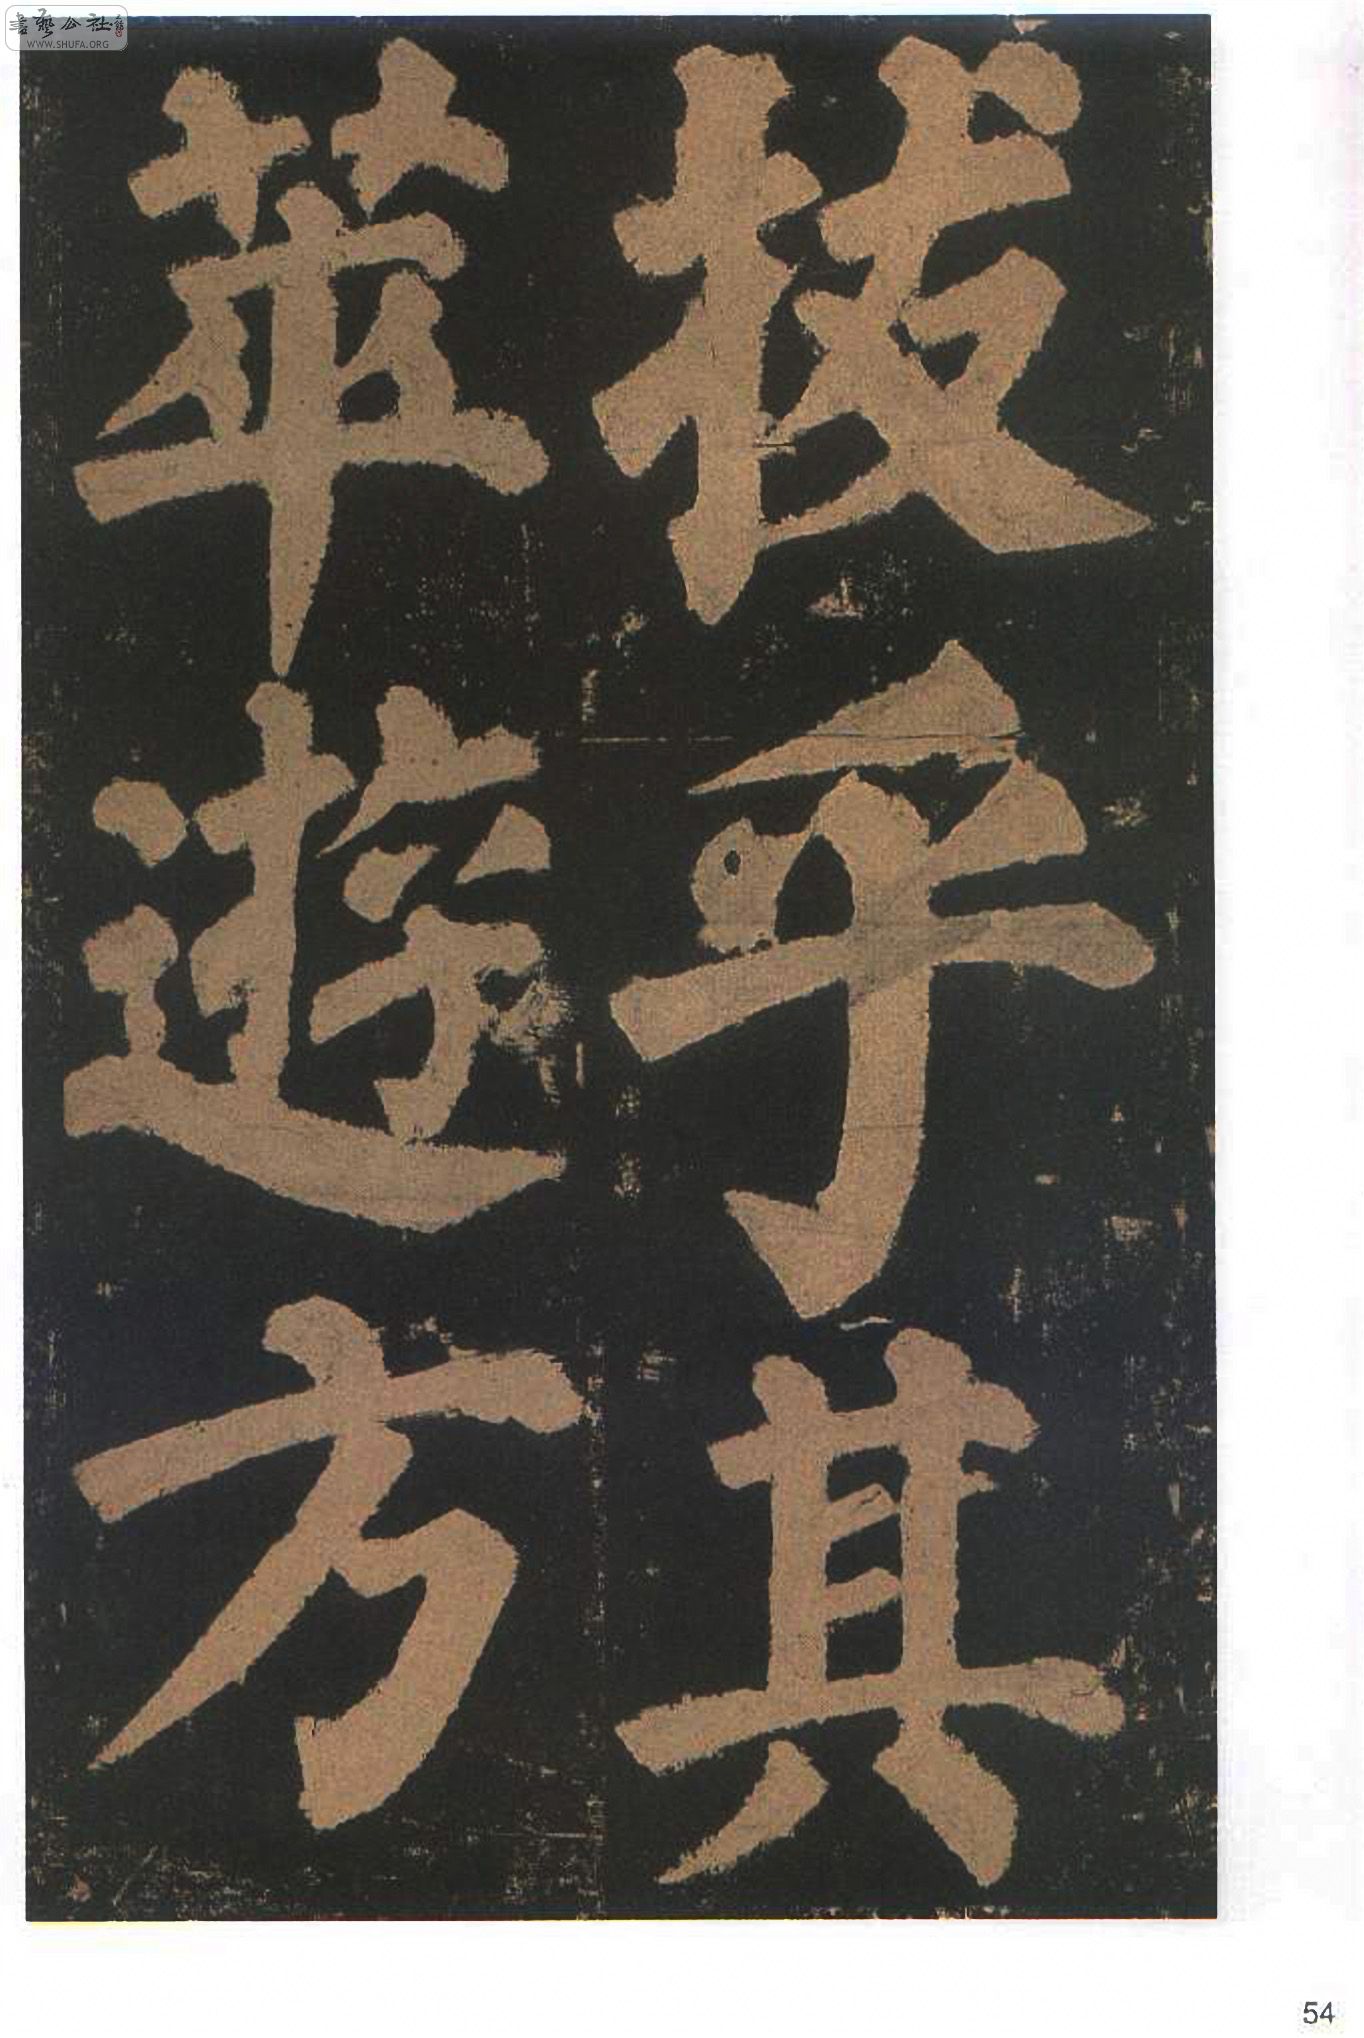 書藝公社
WWW.SHUFA.ORG
拔乎其
萃遊方
54